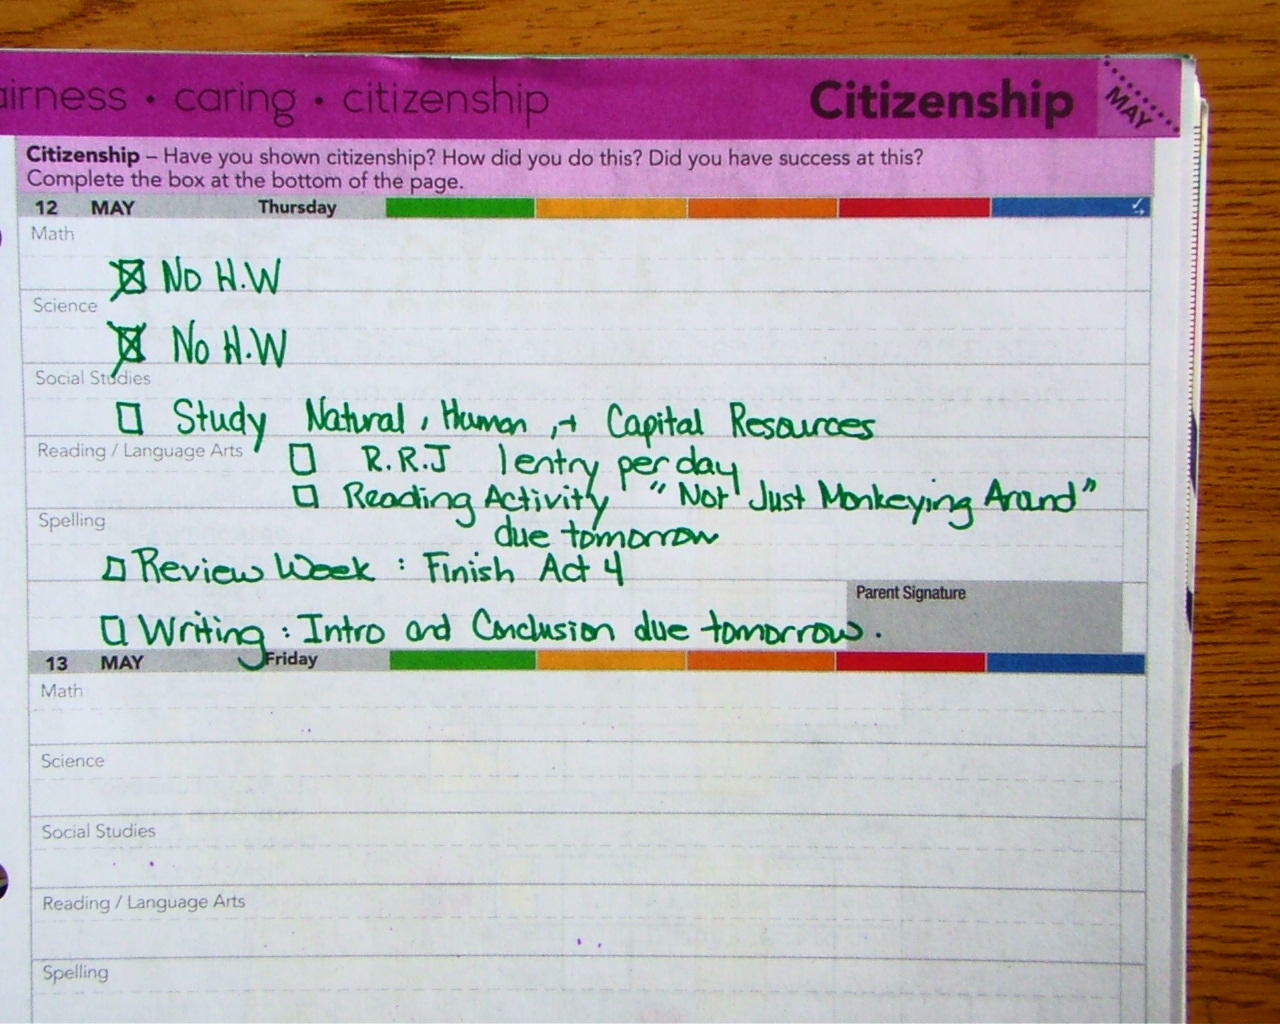 airness • caring • citizenship Citizenship MAY
Citizenship – Have you shown citizenship? How did you do this? Did you have success at this?
Complete the box at the bottom of the page.
12 MAY Thursday
Math
No H.W
Science
No H.W
Social Studies
Study Natural, Human, + Capital Resources
Reading / Language Arts
R.R.J 1 entry per day
Reading Activity "Not Just Monkeying Around"
Spelling
due tomorrow
Review Week: Finish Act 4
Parent Signature
Writing: Intro and Conclusion due tomorrow.
13 MAY Friday
Math
Science
Social Studies
Reading / Language Arts
Spelling